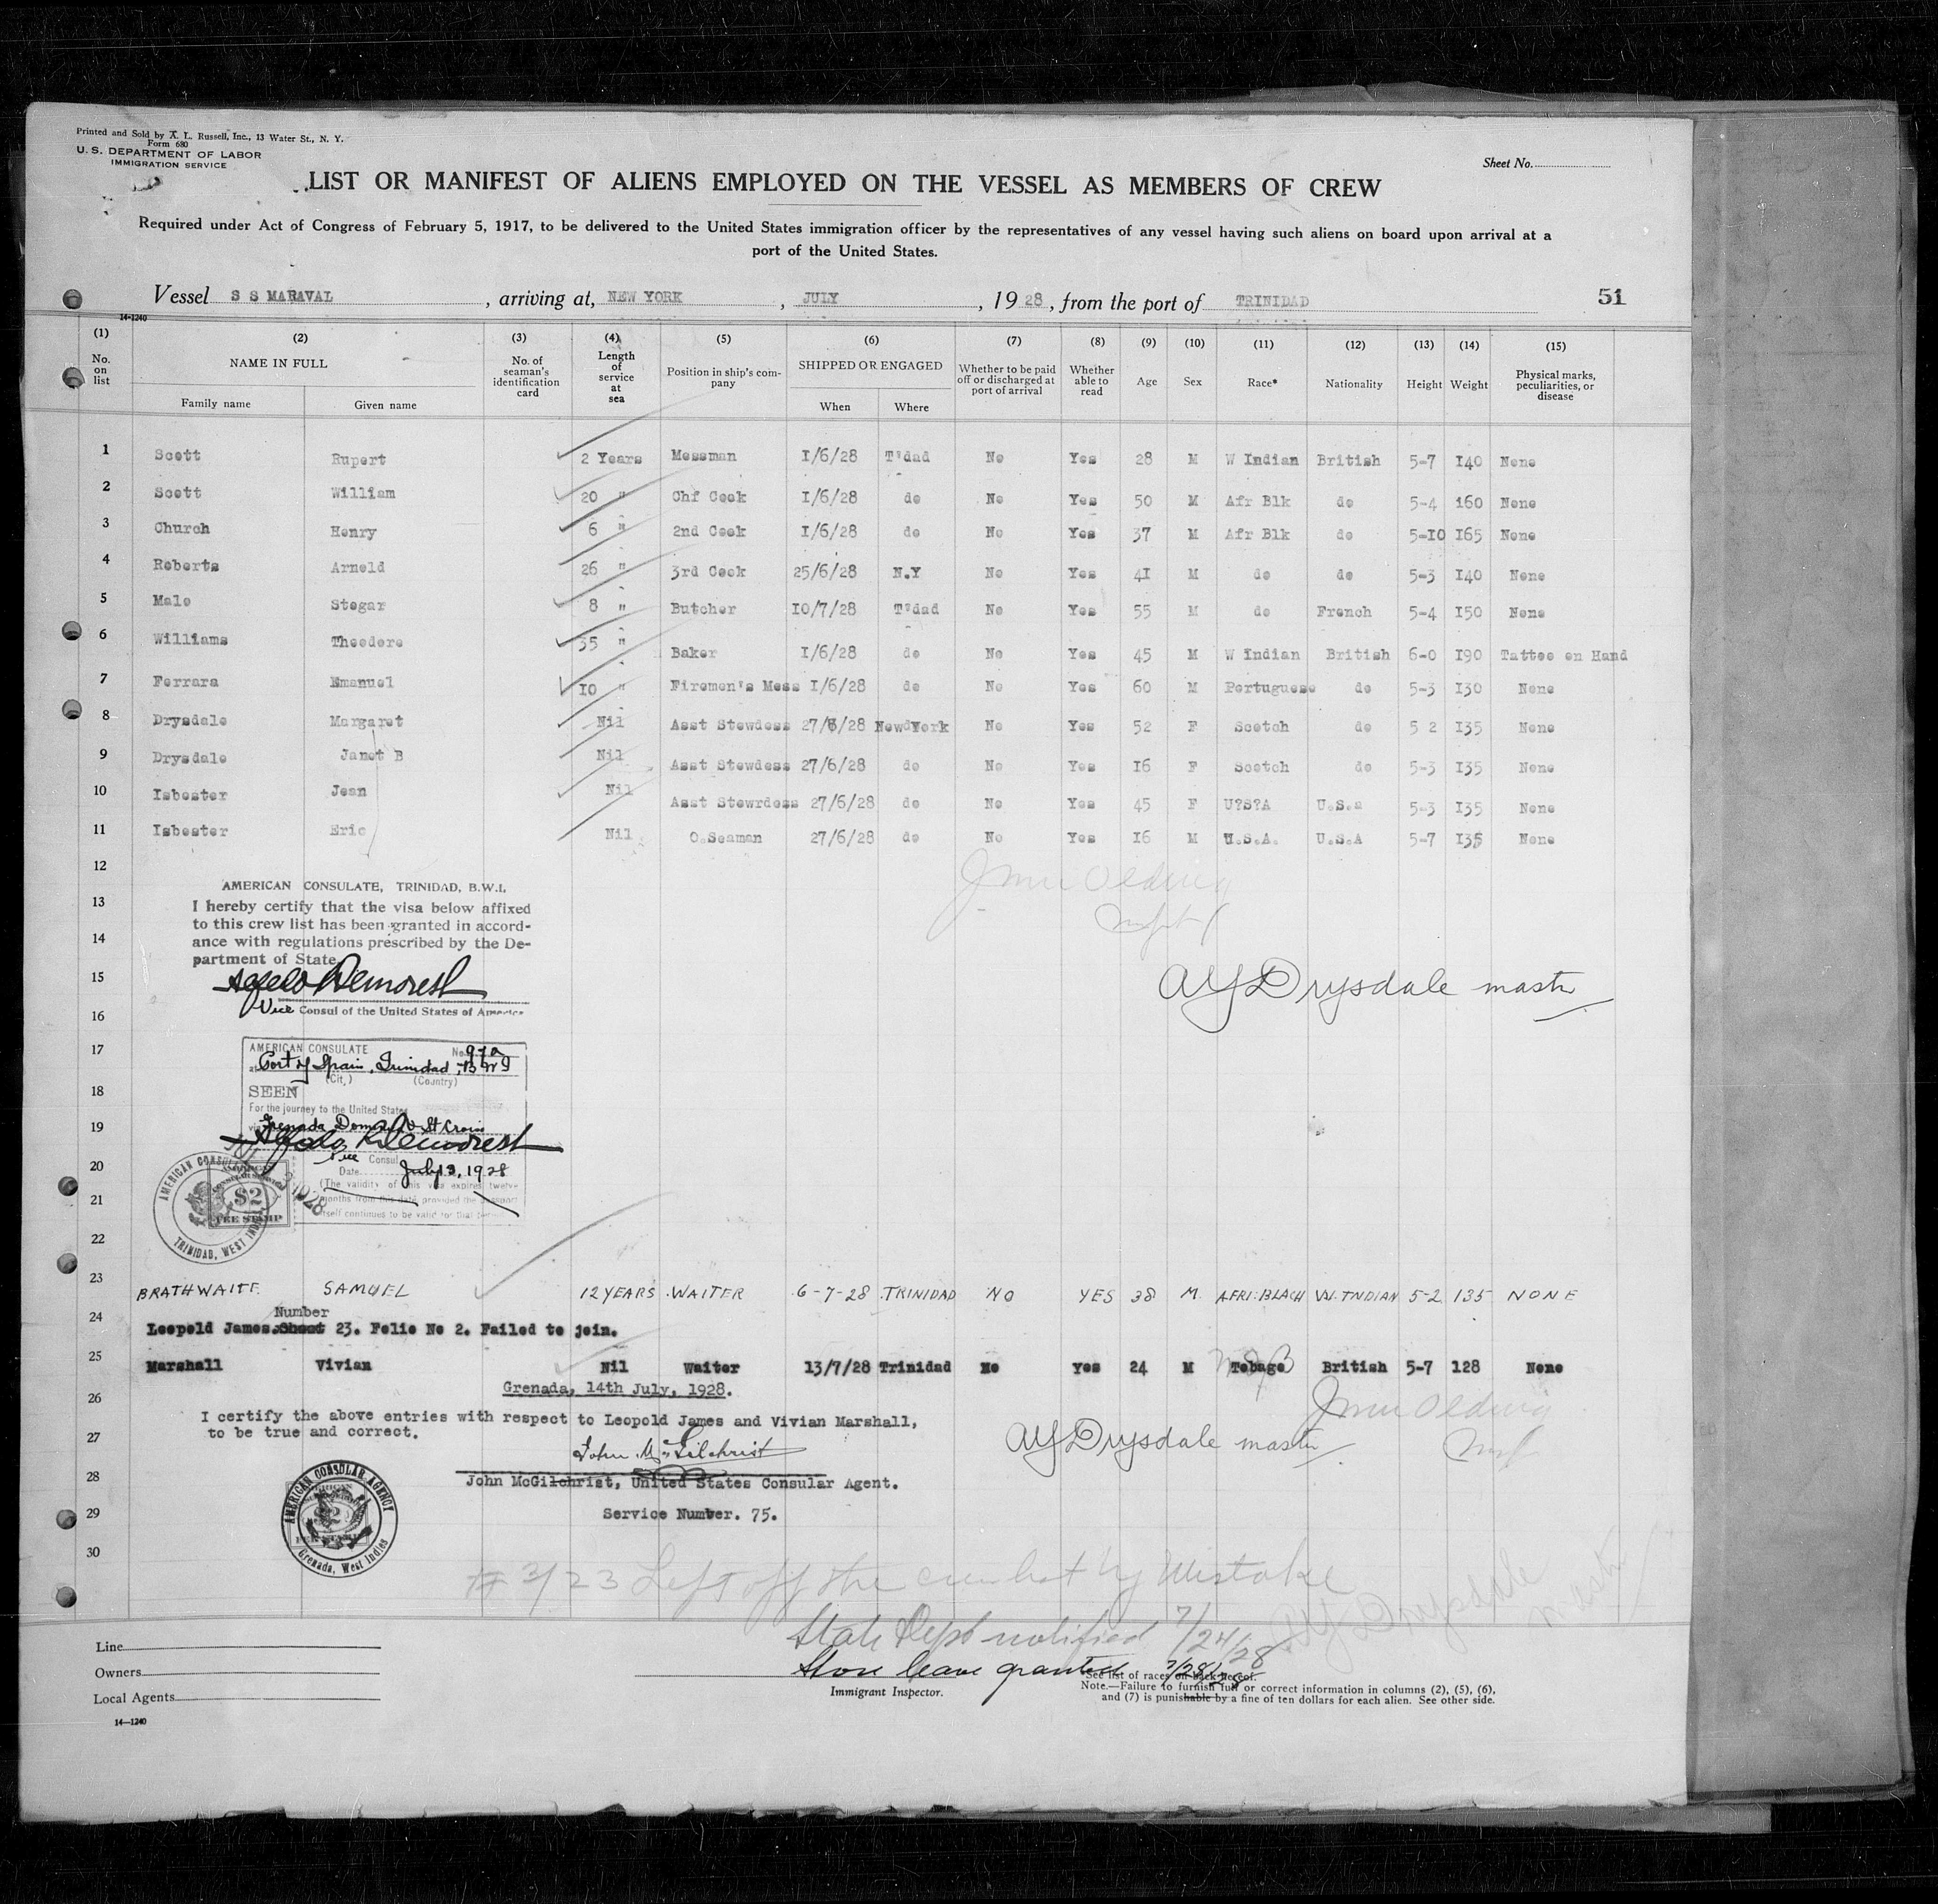 Printed and Sold by A. L. Russell, Inc., 13 Water St., N. Y.
Form 680
U. S. DEPARTMENT OF LABOR
IMMIGRATION SERVICE
Sheet No.
LIST OR MANIFEST OF ALIENS EMPLOYED ON THE VESSEL AS MEMBERS OF CREW
Required under Act of Congress of February 5, 1917, to be delivered to the United States immigration officer by the representatives of any vessel having such aliens on board upon arrival at a
port of the United States.
Vessel S S MARAVAL, arriving at, NEW YORK, JULY, 1928, from the port of TRINIDAD 51
14-1240
(1) (2) (3) (4) (5) (6) (7) (8) (9) (10) (11) (12) (13) (14) (15)
No. on list NAME IN FULL Family name Given name No. of seaman's identification card Length of service at sea Position in ship's company SHIPPED OR ENGAGED When Where Whether to be paid off or discharged at port of arrival Whether able to read Age Sex Race* Nationality Height Weight Physical marks, peculiarities, or disease
1 Scott Rupert 2 Years Messman 1/6/28 T'dad No Yes 28 M W Indian British 5-7 140 None
2 Scott William 20 " Chf Cook 1/6/28 do No Yes 50 M Afr Blk do 5-4 160 None
3 Church Henry 6 " 2nd Cook 1/6/28 do No Yes 37 M Afr Blk do 5-10 165 None
4 Roberts Arnold 26 " 3rd Cook 25/6/28 N.Y No Yes 41 M do do 5-3 140 None
5 Malo Stegar 8 " Butcher 10/7/28 T'dad No Yes 55 M do French 5-4 150 None
6 Williams Theodore 35 " Baker 1/6/28 do No Yes 45 M W Indian British 6-0 190 Tattoo on Hand
7 Ferrara Emanuel 10 " Firemen's Mess 1/6/28 do No Yes 60 M Portuguese do 5-3 130 None
8 Drysdale Margaret Nil Asst Stewdess 27/6/28 New York No Yes 52 F Scotch do 5 2 135 None
9 Drysdale Janet B Nil Asst Stewdess 27/6/28 do No Yes 16 F Scotch do 5-3 135 None
10 Isbester Jean Nil Asst Stewrdess 27/6/28 do No Yes 45 F U?S?A U.S.a 5-3 135 None
11 Isbester Eric Nil O.Seaman 27/6/28 do No Yes 16 M U.S.A. U.S.A 5-7 135 None
12
AMERICAN CONSULATE, TRINIDAD, B.W.I.
13 I hereby certify that the visa below affixed
to this crew list has been granted in accord-
14 ance with regulations prescribed by the De-
partment of State.
15 AY Drysdale master
Vice Consul of the United States of America
16
17 AMERICAN CONSULATE No.
at Port of Spain, Trinidad, B W I
(City) (Country)
18 SEEN
For the journey to the United States
19 via Grenada St Croix
Vice Consul
20 Date July 13, 1928
(The validity of this visa expires twelve
21 months from this date, provided the passport
itself continues to be valid for that period
AMERICAN CONSULATE
$2
FEE STAMP
TRINIDAD, WEST INDIES
22
23 BRATHWAITE SAMUEL 12 YEARS WAITER 6-7-28 TRINIDAD NO YES 38 M AFRI: BLACH W. INDIAN 5-2 135 NONE
Number
24 Leopold James. Sheet 23. Folio No 2. Failed to join.
25 Marshall Vivian Nil Waiter 13/7/28 Trinidad No Yes 24 M Tobago British 5-7 128 None
Grenada, 14th July, 1928.
26
I certify the above entries with respect to Leopold James and Vivian Marshall,
27 to be true and correct.
John McGilchrist AY Drysdale master
28 John McGilchrist, United States Consular Agent.
29 Service Number. 75.
AMERICAN CONSULAR AGENCY
Grenada, West Indies
30
# 3/23 Left off the crew list by Mistake
AY Drysdale master
State Dept notified 7/24/28
Line
Owners Shore leave granted 7/28/28
Local Agents
Immigrant Inspector.
See list of races on back hereof.
Note.—Failure to furnish full or correct information in columns (2), (5), (6),
and (7) is punishable by a fine of ten dollars for each alien. See other side.
14—1240